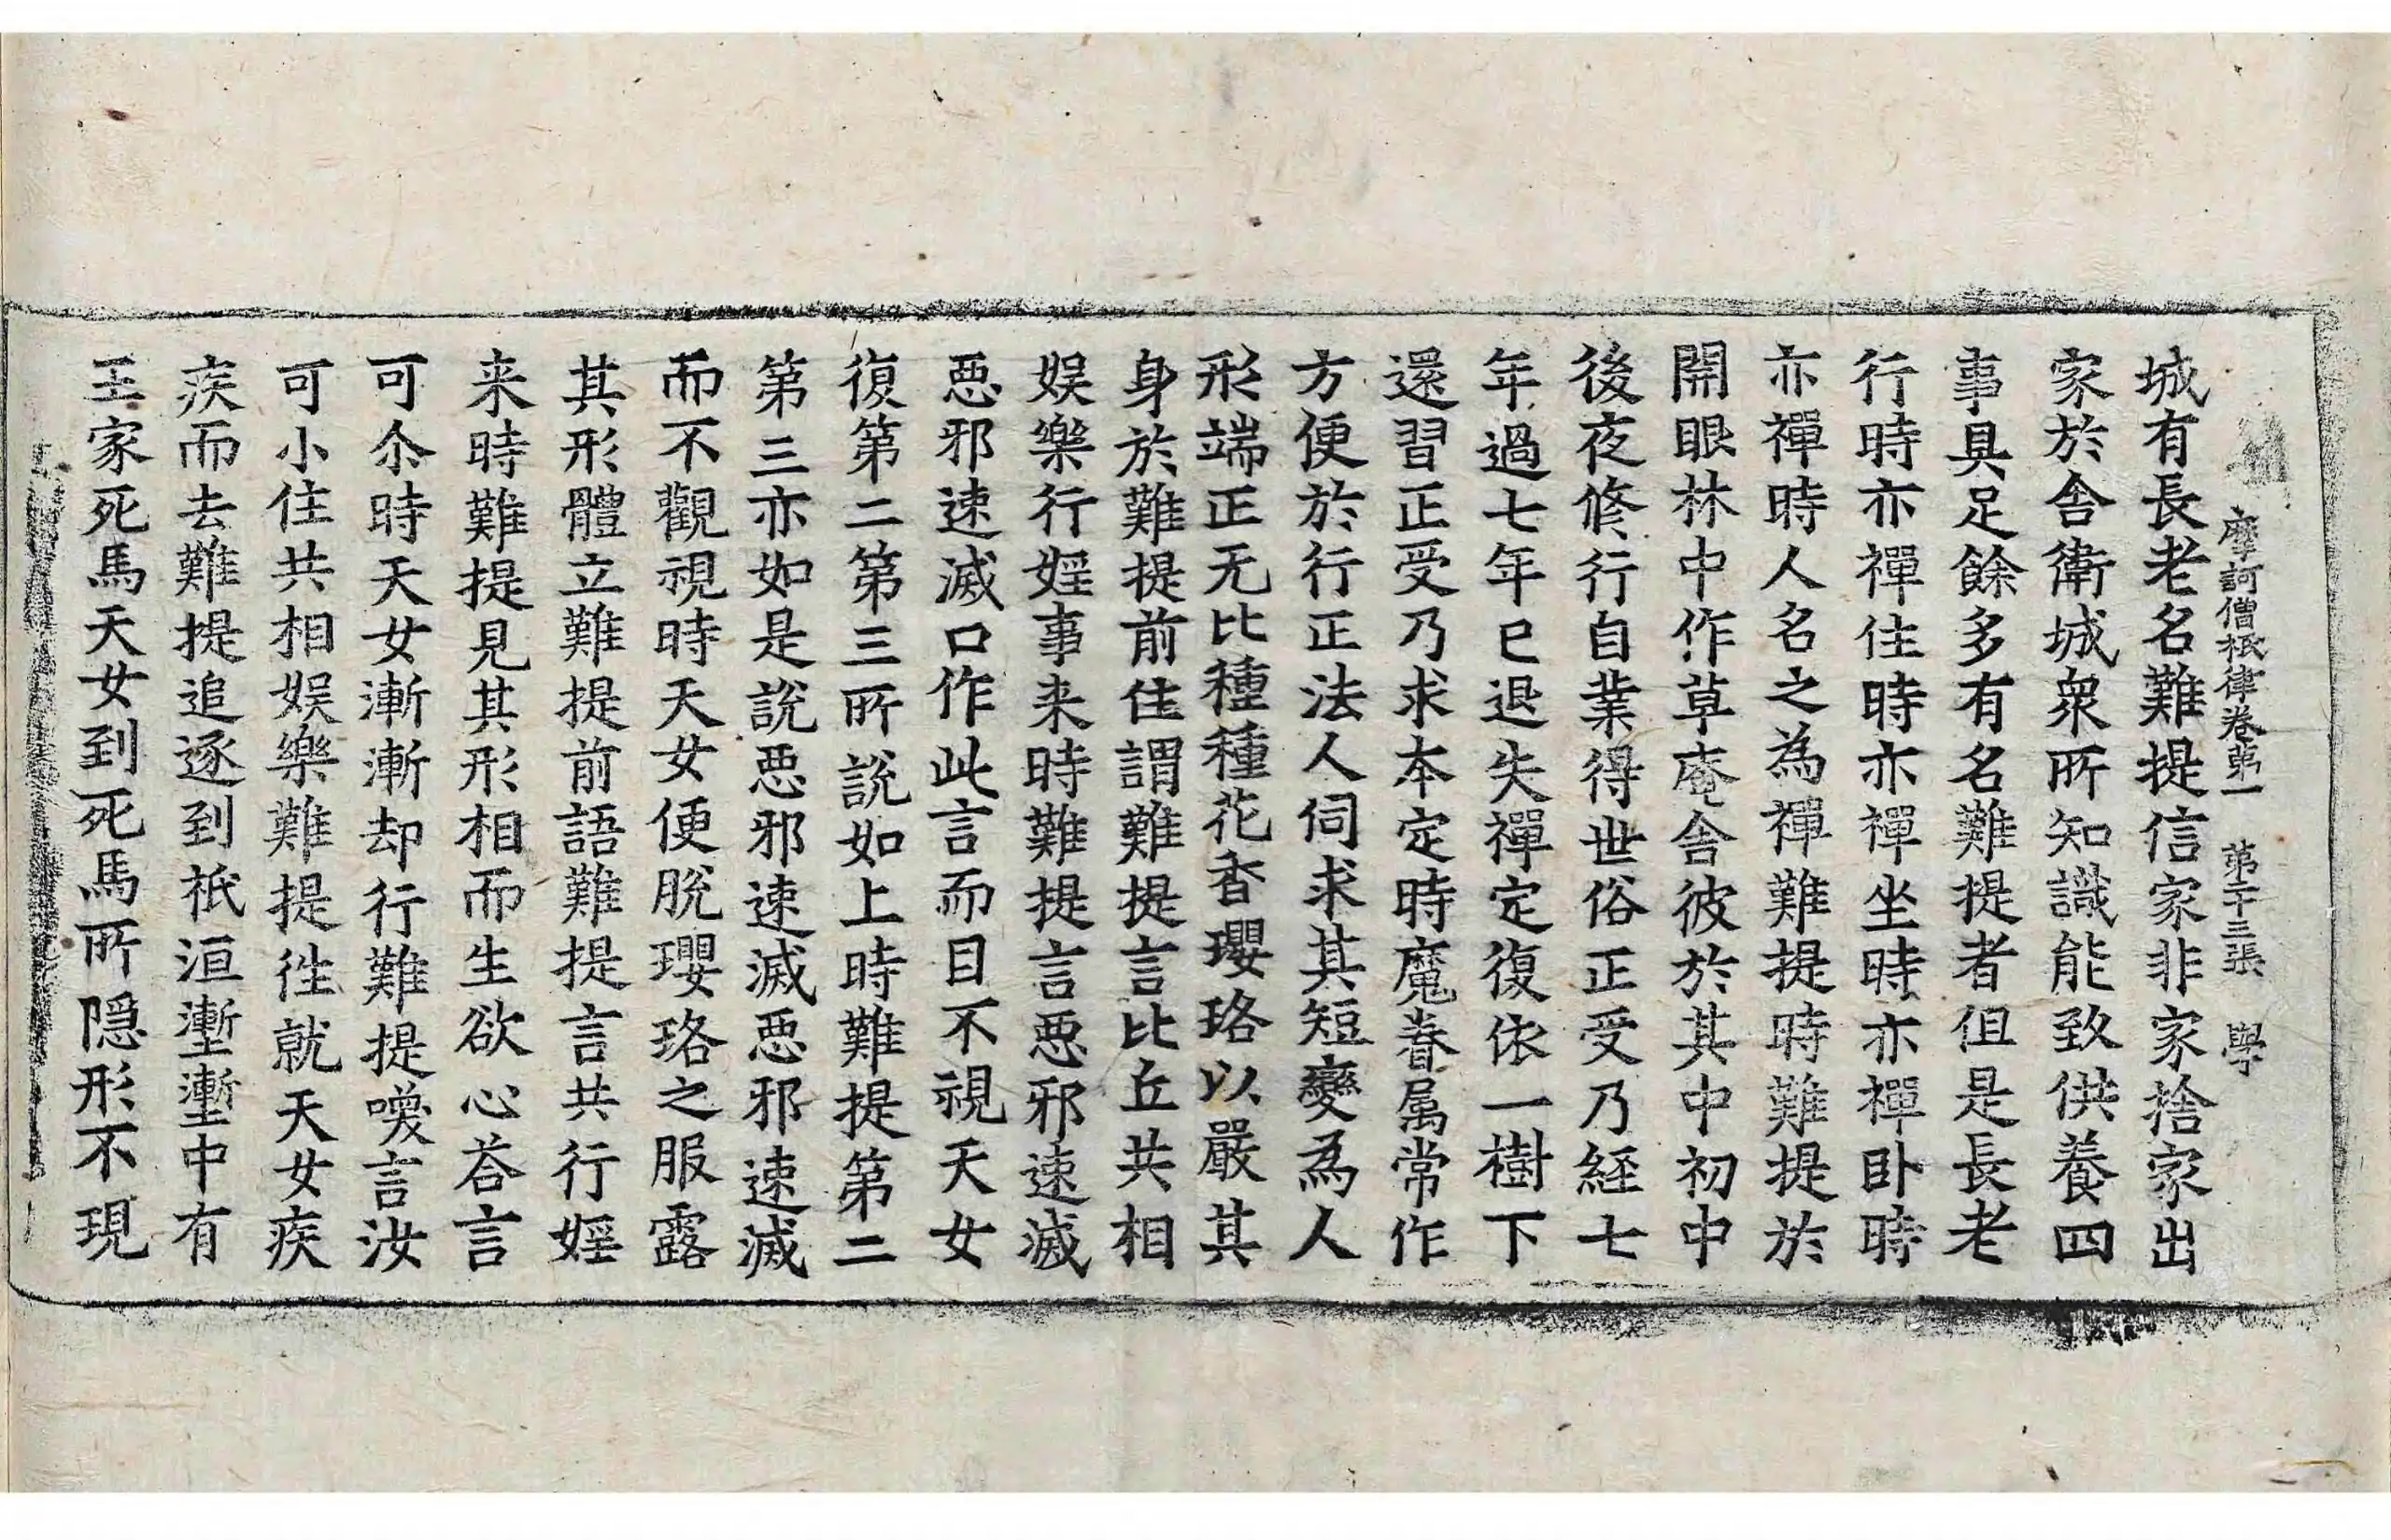 摩訶僧祇律卷第一　第二十三張　學
城有長老名難提信家非家捨家出
家於舎衛城衆所知識能致供養四
事具足餘多有名難提者但是長老
行時亦禪住時亦禪坐時亦禪卧時
亦禪時人名之為禪難提時難提於
開眼林中作草庵舎彼於其中初中
後夜修行自業得世俗正受乃經七
年過七年已退失禪定復依一樹下
還習正受乃求本定時魔眷属常作
方便於行正法人伺求其短變為人
形端正无比種種花香瓔珞以嚴其
身於難提前住謂難提言比丘共相
娱樂行婬事来時難提言惡邪速滅
惡邪速滅口作此言而目不視天女
復第二第三所說如上時難提第二
第三亦如是說惡邪速滅惡邪速滅
而不觀視時天女便脫瓔珞之服露
其形體立難提前語難提言共行婬
来時難提見其形相而生欲心荅言
可尒時天女漸漸却行難提喚言汝
可小住共相娱樂難提徃就天女疾
疾而去難提追逐到祇洹壍壍中有
王家死馬天女到死馬所隠形不現